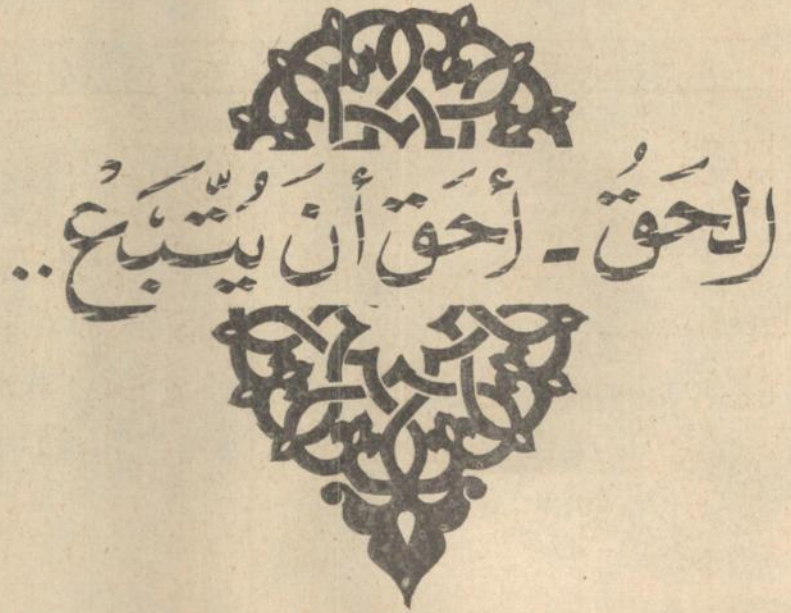 الحَقُ - أحَق أنَ يُتّبَعْ ..